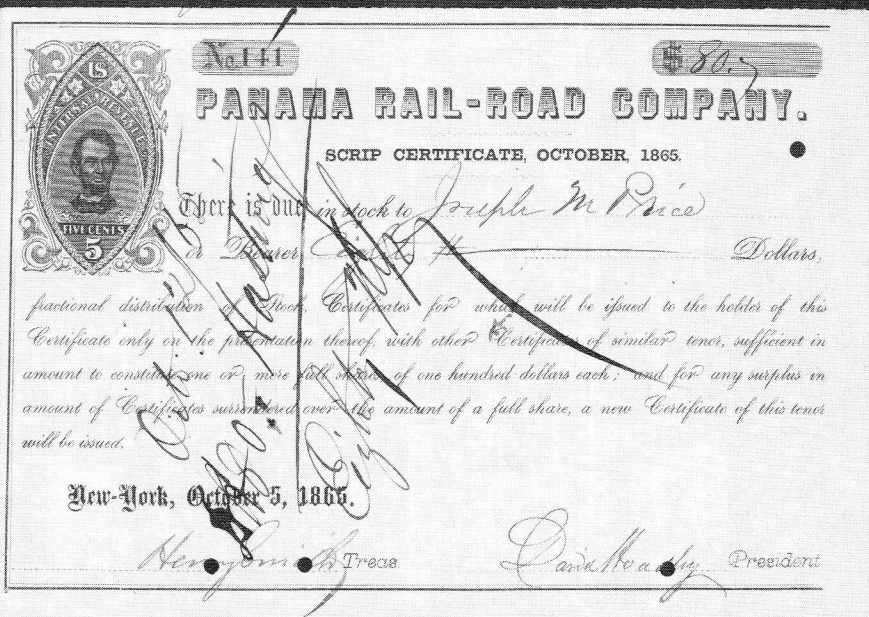 No. 141
$ 80.
PANAMA RAIL-ROAD COMPANY.
SCRIP CERTIFICATE, OCTOBER, 1865.
US
INTERNAL REVENUE
FIVE CENTS
5
There is due in stock to Joseph M Price
or Bearer Dollars,
fractional distribution of Stock, Certificates for which will be issued to the holder of this
Certificate only on the presentation thereof, with other Certificates of similar tenor, sufficient in
amount to constitute one or more full shares of one hundred dollars each; and for any surplus in
amount of Certificates surrendered over the amount of a full share, a new Certificate of this tenor
will be issued.
New-York, October 5, 1865.
Henry Smith Treas
David Hoadley President